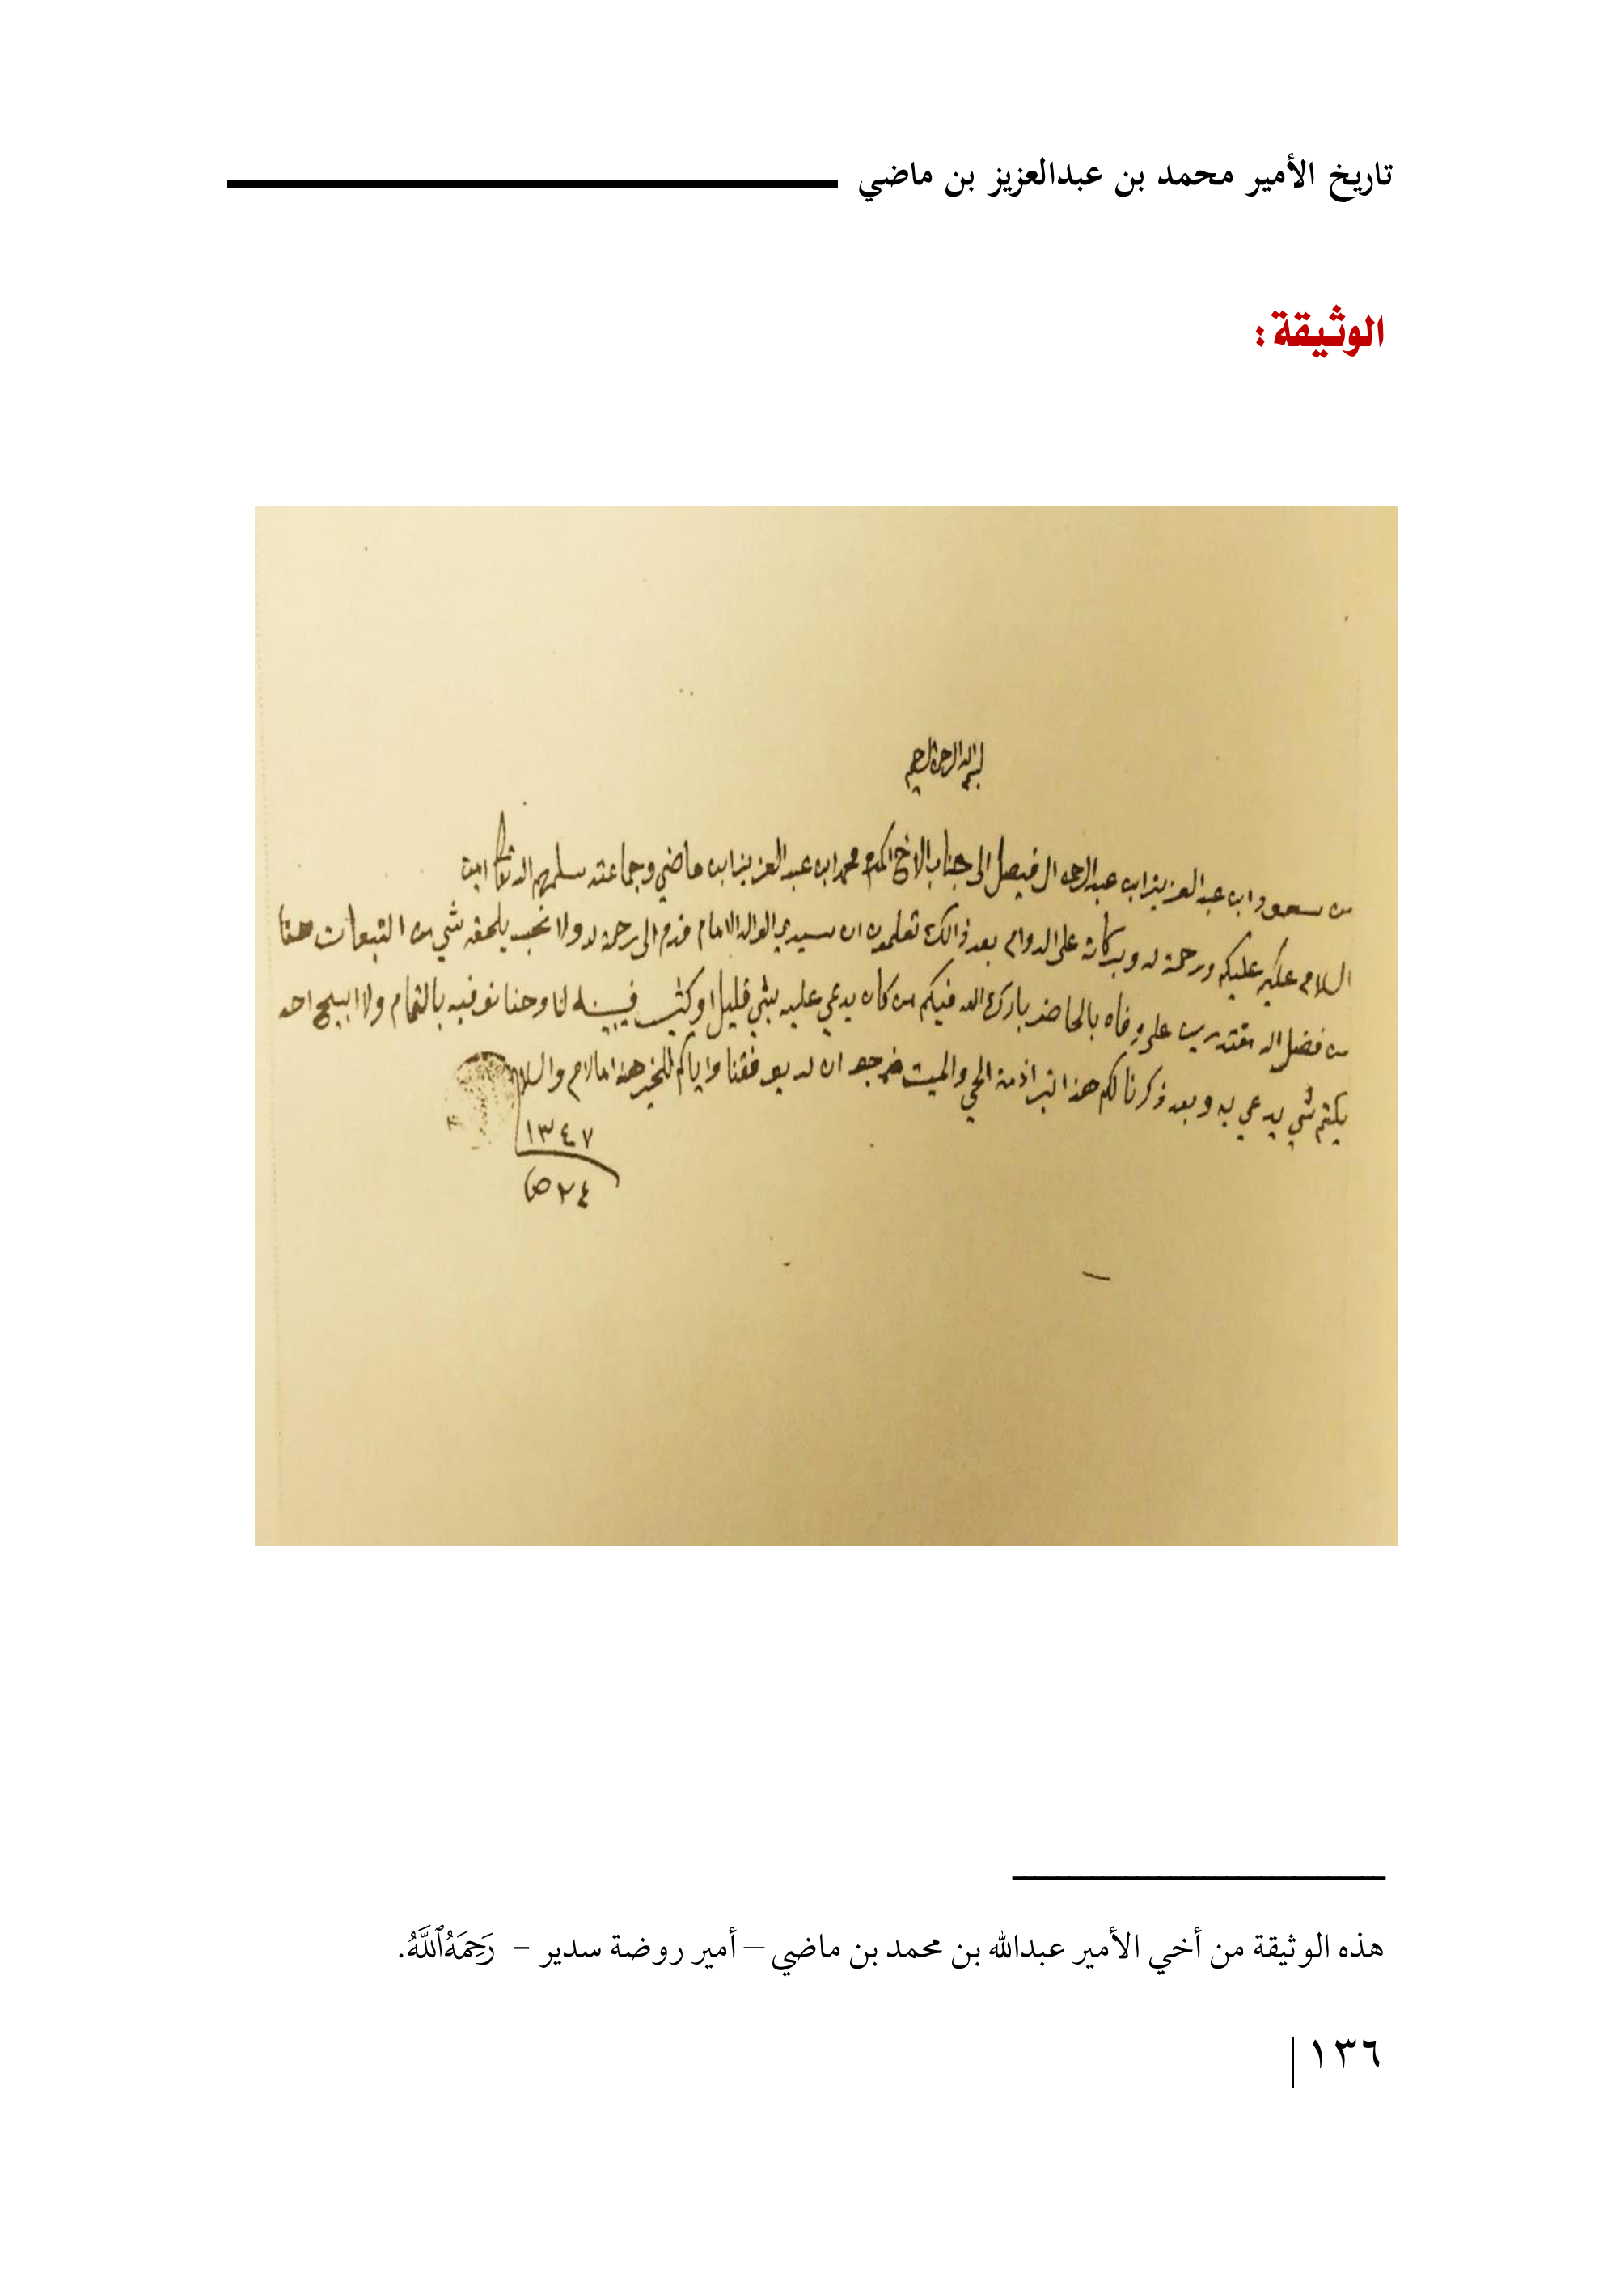 تاريخ الأمير محمد بن عبدالعزيز بن ماضي
الوثيقة:
بسم الله الرحمن الرحيم
من سعود ابن عبد العزيز ابن عبد الرحمن ال فيصل الى جناب الاخ المكرم محمد ابن عبد العزيز ابن ماضي وجماعته سلمهم الله تعالى امين
السلام عليكم عليكم ورحمة الله وبركاته على الدوام بعد ذالك تعلمون ان سيدي الوالد الامام قدم الى رحمة الله ولا نحب يلحقه شي من التبعات حنا
من فضل الله مقتدرين على وفاه بالحاضر بارك الله فيكم من كان يدعي عليه بشي قليل او كثير فيبينه لنا وحنا نوفيه بالتمام ولا ابيح احد
يكتم شي يدعي به وبعد ذكرنا لكم هذا تبرا ذمة الحي والميت نرجو ان الله يوفقنا واياكم للخير هذا مالزم والسلام
١٣٤٧
٢٤ ص
هذه الوثيقة من أخي الأمير عبدالله بن محمد بن ماضي – أمير روضة سدير – رَحِمَهُ ٱللَّهُ.
١٣٦|